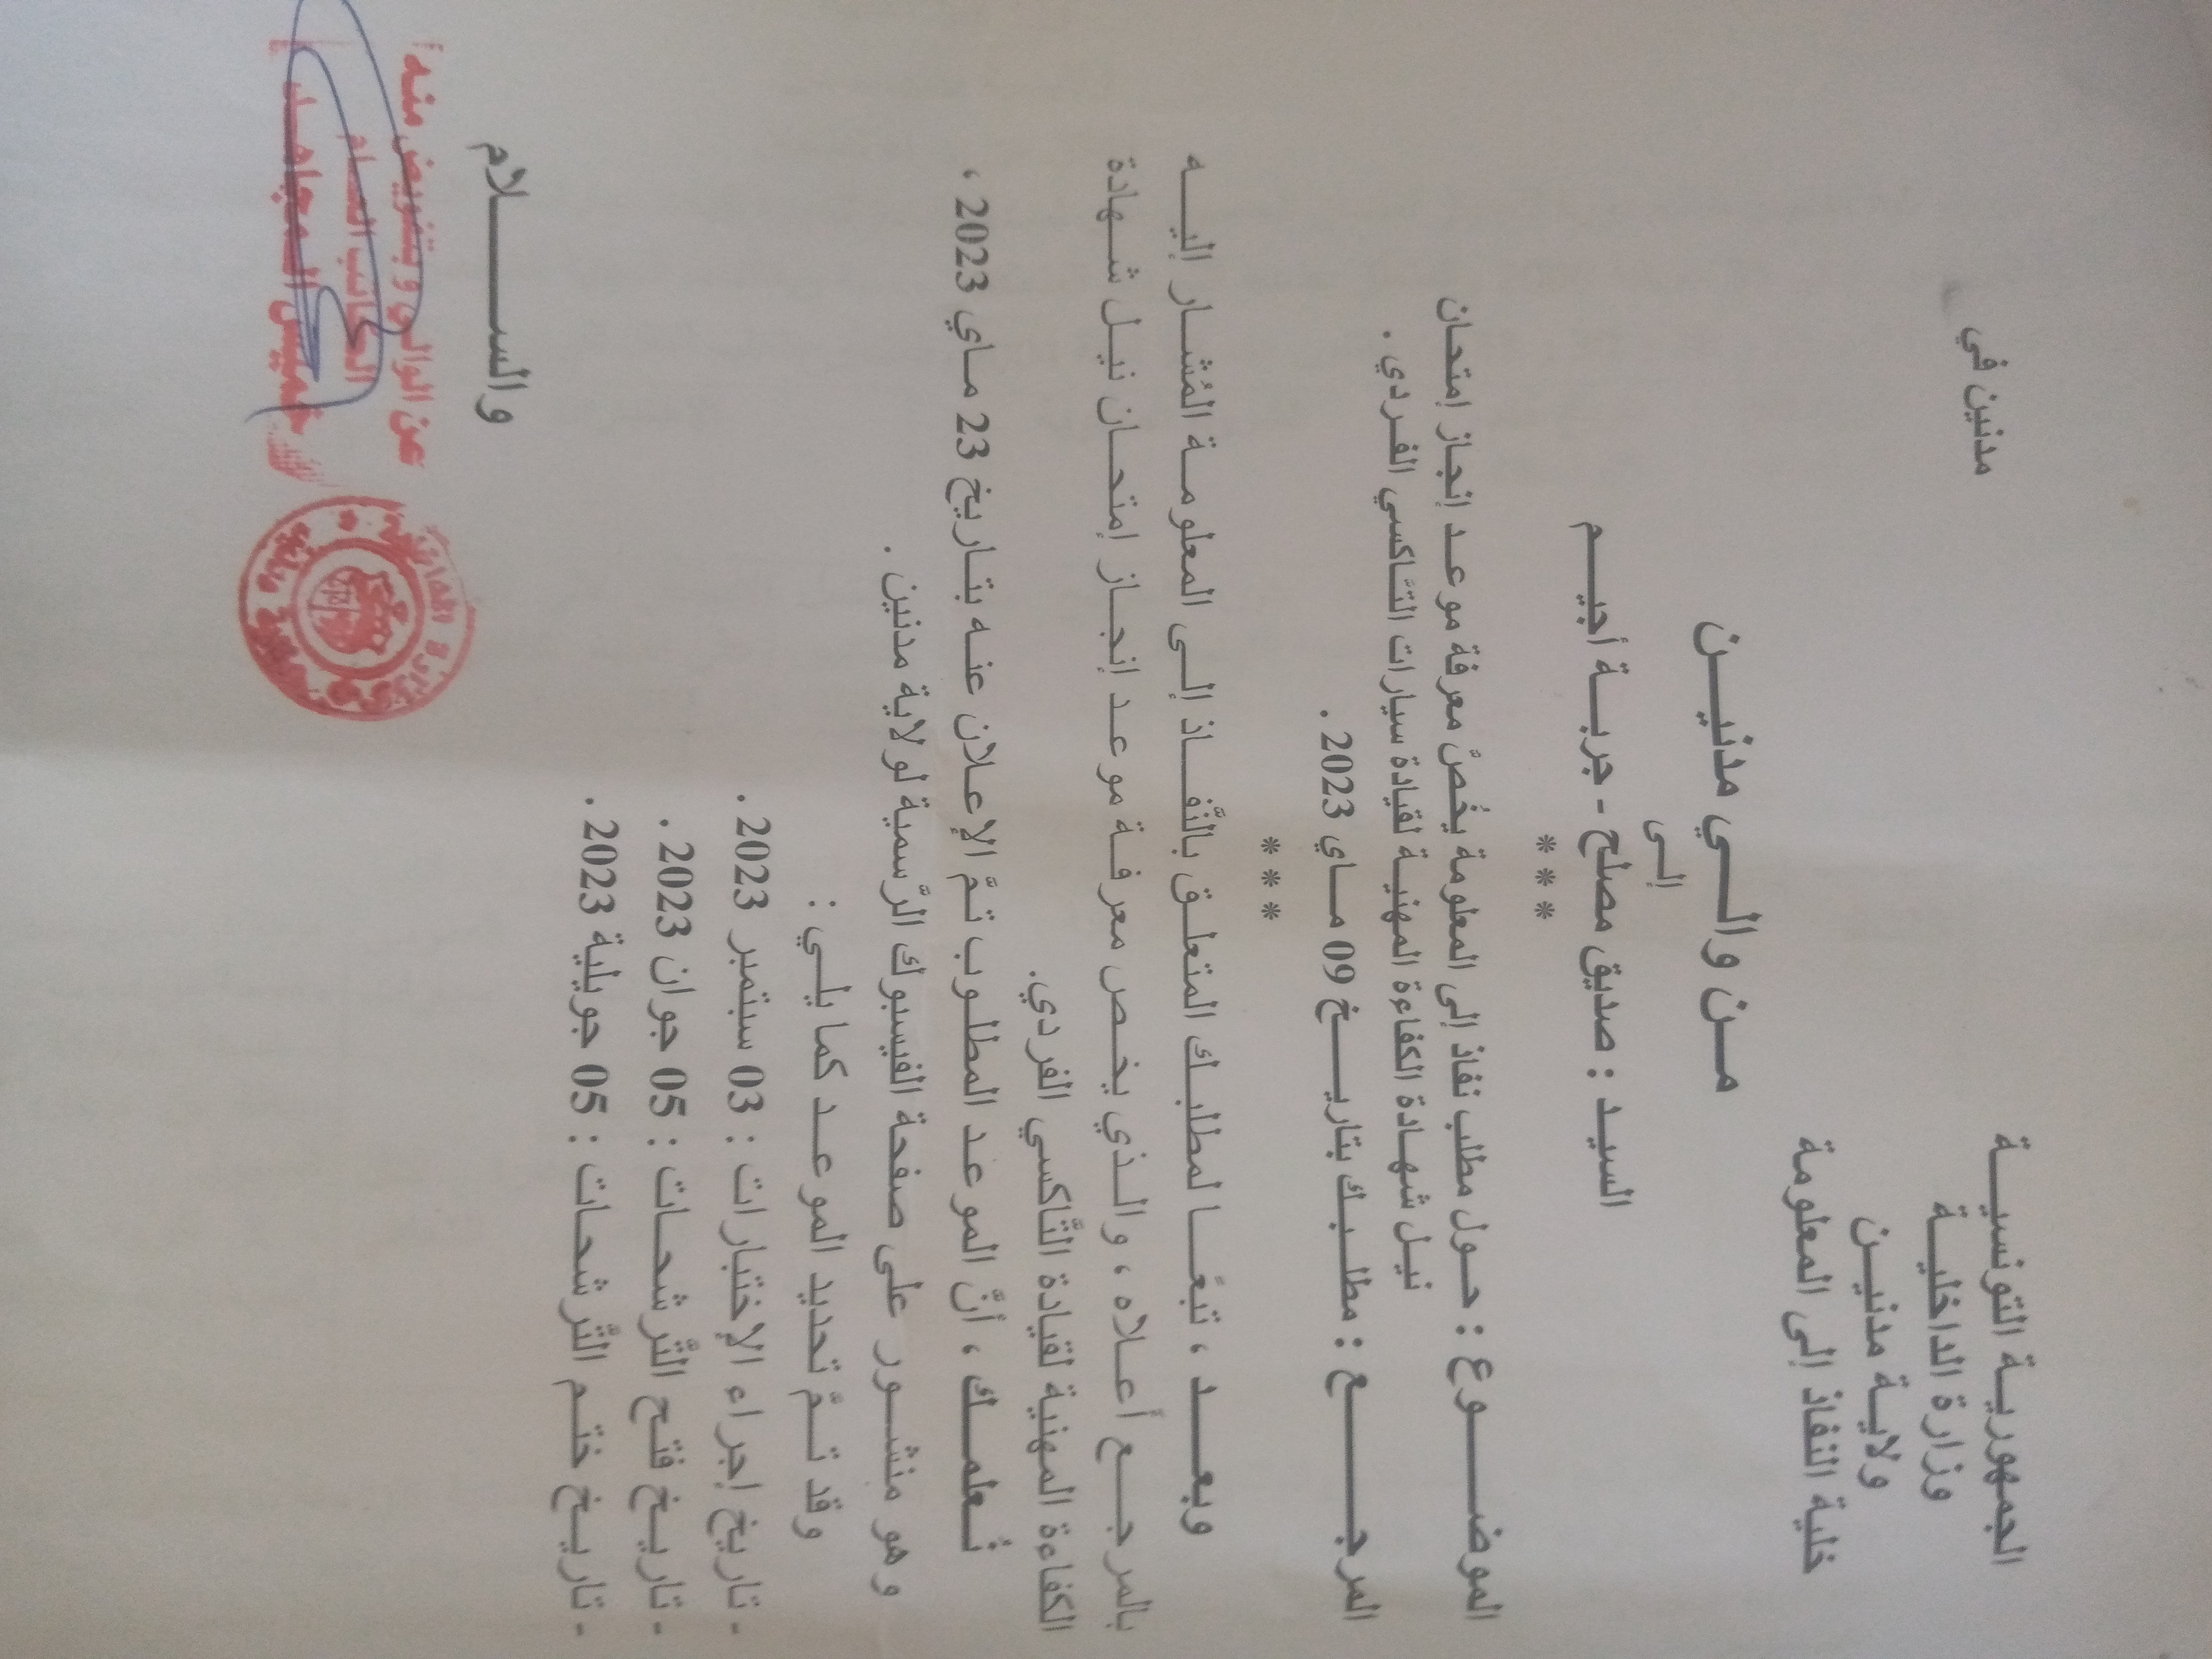 الجمهورية التونسية
وزارة الداخلية
ولاية مدنين
خلية النفاذ إلى المعلومة
مدنين في
من والي مدنين
إلى
السيد : صديق مصلح - جربة أجيم
* * *
الموضوع : حول مطلب نفاذ إلى المعلومة يخُصّ معرفة موعد إنجاز إمتحان
نيل شهادة الكفاءة المهنية لقيادة سيارات التاكسي الفردي .
المرجع : مطلبك بتاريخ 09 ماي 2023 .
* * *
وبعد ، تبعًا لمطلبك المتعلق بالنّفاذ إلى المعلومة المُشار إليه
بالمرجع أعلاه ، والذي يخص معرفة موعد إنجاز إمتحان نيل شهادة
الكفاءة المهنية لقيادة التّاكسي الفردي.
نُعلمك ، أنّ الموعد المطلوب تمّ الإعلان عنه بتاريخ 23 ماي 2023 ،
وهو منشور على صفحة الفيسبوك الرّسمية لولاية مدنين .
وقد تمّ تحديد الموعد كما يلي :
- تاريخ إجراء الإختبارات : 03 سبتمبر 2023 .
- تاريخ فتح التّرشحات : 05 جوان 2023 .
- تاريخ ختم التّرشحات : 05 جويلية 2023 .
والسلام
عن الوالي وبتفويض منه
الكاتب العام
خميس المجاهد